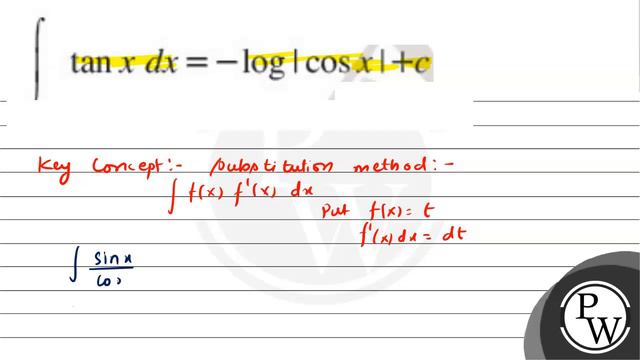 ∫ tan x dx = −log | cos x | + c
Key Concept :- Substitution method : -
∫ f(x) f'(x) dx
Put f(x) = t
f'(x) dx = dt
∫ sinx
cos
P
W